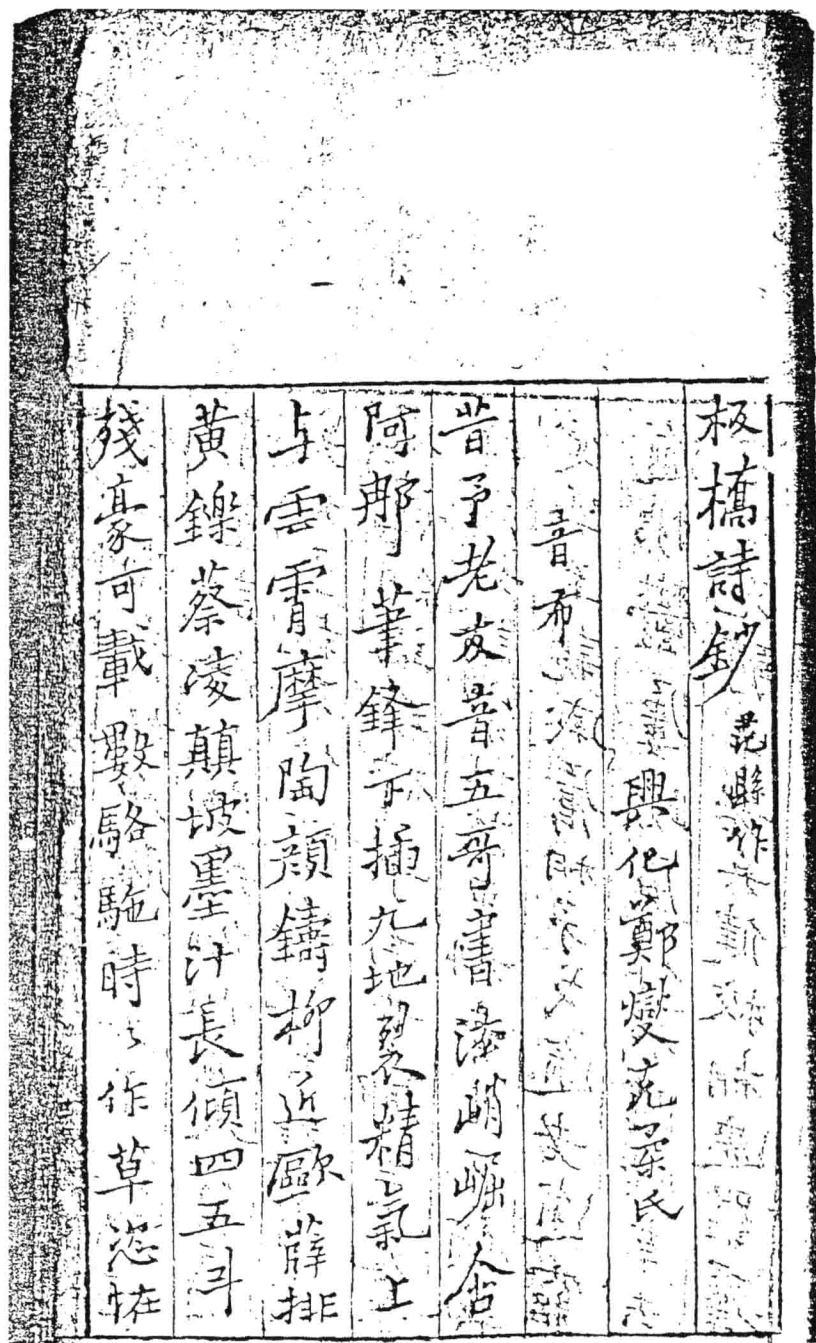 板橋詩鈔 范縣作
興化鄭燮克柔氏
音布
昔予老友音五哥書法峭崛含
阿那筆鋒下插九地裂精氣上
与雲霄摩陶顏鑄柳近歐薛排
黃鑠蔡凌顛坡墨汁長傾四五斗
殘豪可載數駱駝時々作草恣怪